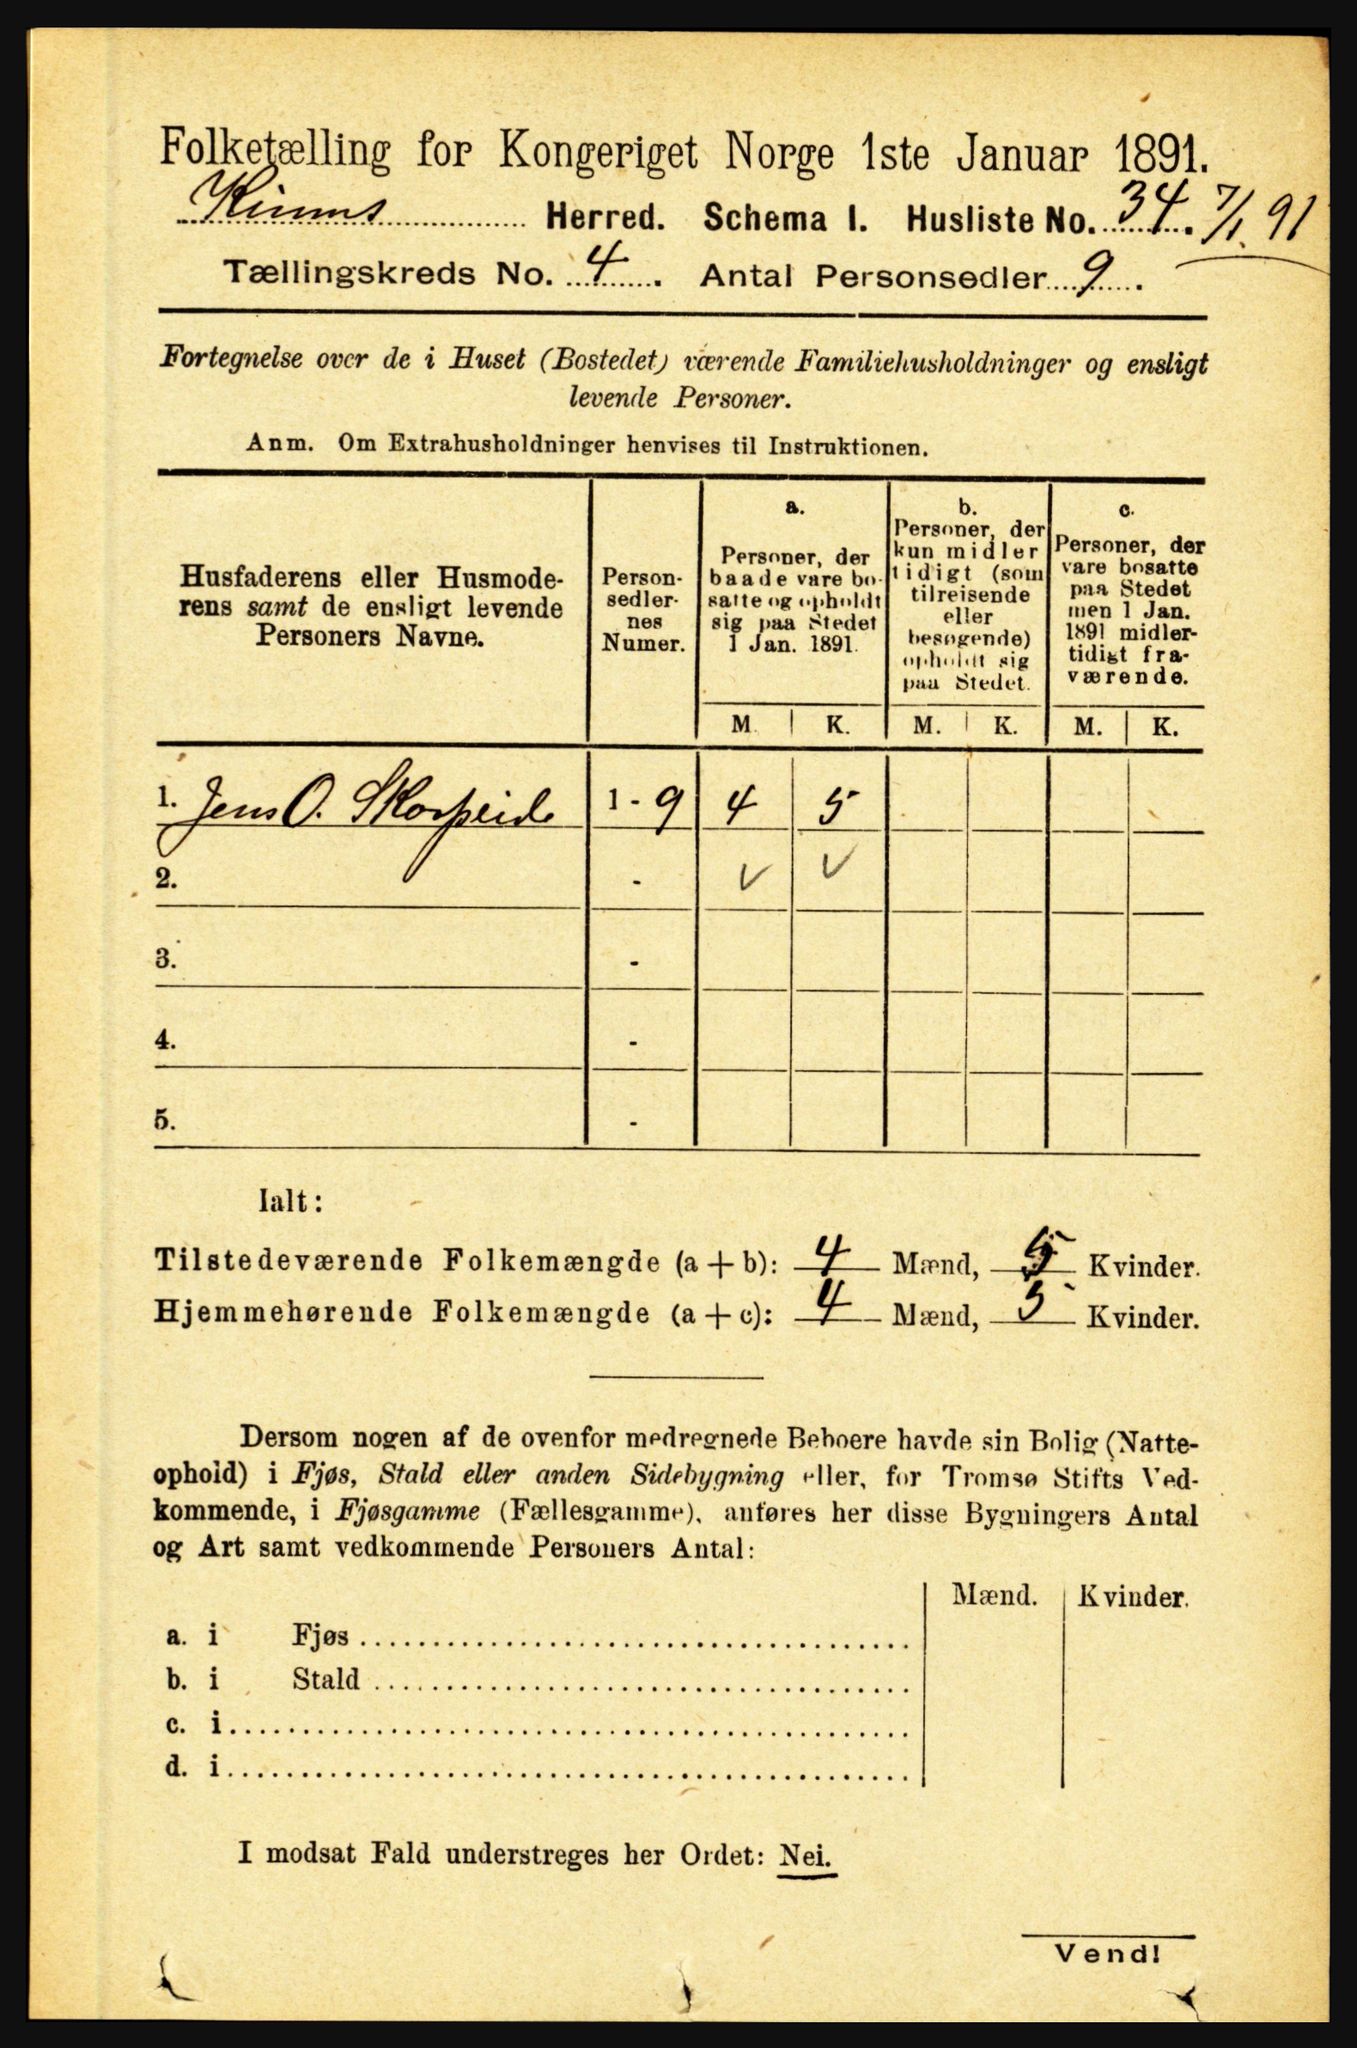 Folketælling for Kongeriget Norge 1ste Januar 1891.
Kinns Herred. Schema I. Husliste No. 34. 7/1 91
Tællingskreds No. 4. Antal Personsedler 9.
Fortegnelse over de i Huset (Bostedet) værende Familiehusholdninger og ensligt
levende Personer.
Anm. Om Extrahusholdninger henvises til Instruktionen.
Husfaderens eller Husmode-
rens samt de ensligt levende
Personers Navne.
Person-
sedler-
nes
Numer.
a.
Personer, der
baade vare bo-
satte og opholdt
sig paa Stedet
1 Jan. 1891.
M. K.
b.
Personer, der
kun midler
tidigt (som
tilreisende
eller
besøgende)
opholdt sig
paa Stedet.
M. K.
c.
Personer, der
vare bosatte
paa Stedet
men 1 Jan.
1891 midler-
tidigt fra-
værende.
M. K.
1. Jens O. Skorpeide 1 - 9 4 5
2. - v v
3. -
4. -
5. -
Ialt:
Tilstedeværende Folkemængde (a + b): 4 Mænd, 5 Kvinder.
Hjemmehørende Folkemængde (a + c): 4 Mænd, 5 Kvinder.
Dersom nogen af de ovenfor medregnede Beboere havde sin Bolig (Natte-
ophold) i Fjøs, Stald eller anden Sidebygning eller, for Tromsø Stifts Ved-
kommende, i Fjøsgamme (Fællesgamme), anføres her disse Bygningers Antal
og Art samt vedkommende Personers Antal:
Mænd. Kvinder.
a. i Fjøs
b. i Stald
c. i
d. i
I modsat Fald understreges her Ordet: Nei.
Vend!